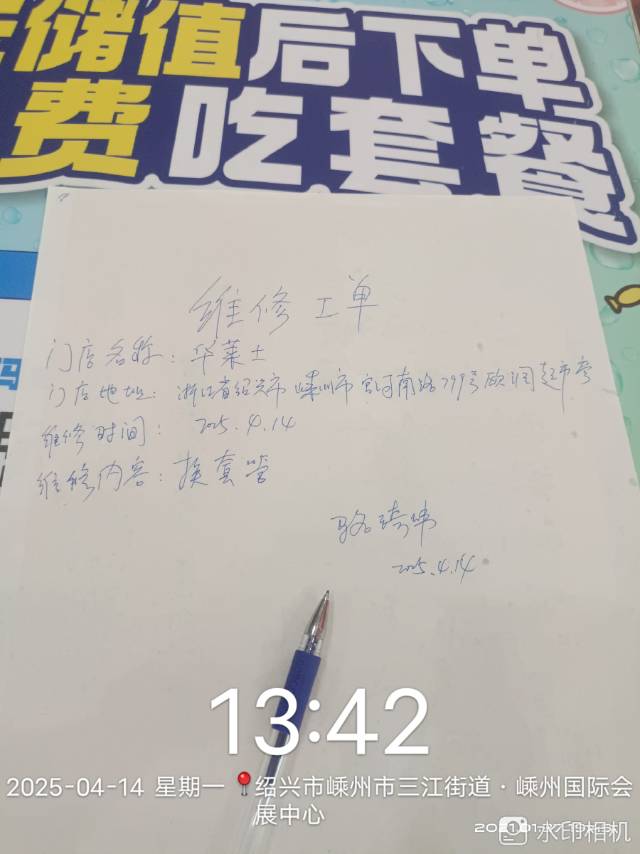 储值后下单
费吃套餐
维修工单
门店名称：华莱士
门店地址：浙江省绍兴市嵊州市官河南路799号欧润超市旁
维修时间：2025.4.14
维修内容：换套管
骆琦炜
2025.4.14
13:42
2025-04-14 星期一 绍兴市嵊州市三江街道·嵊州国际会
展中心
水印相机